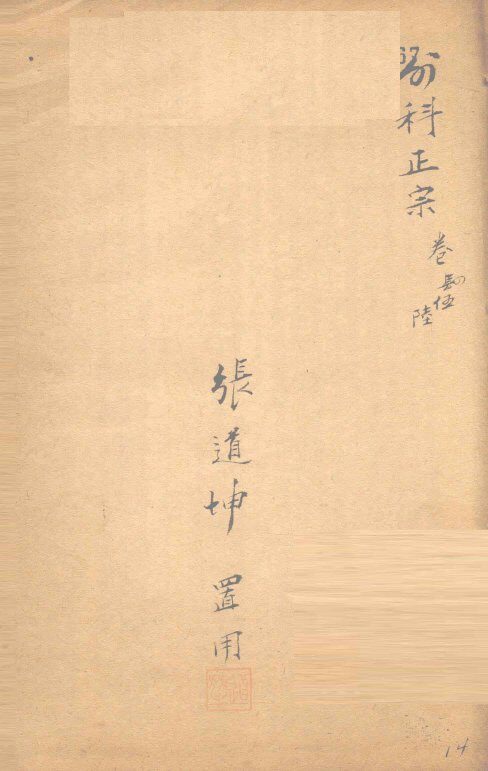 科正宗 卷肆伍陸
張道坤 置用
14